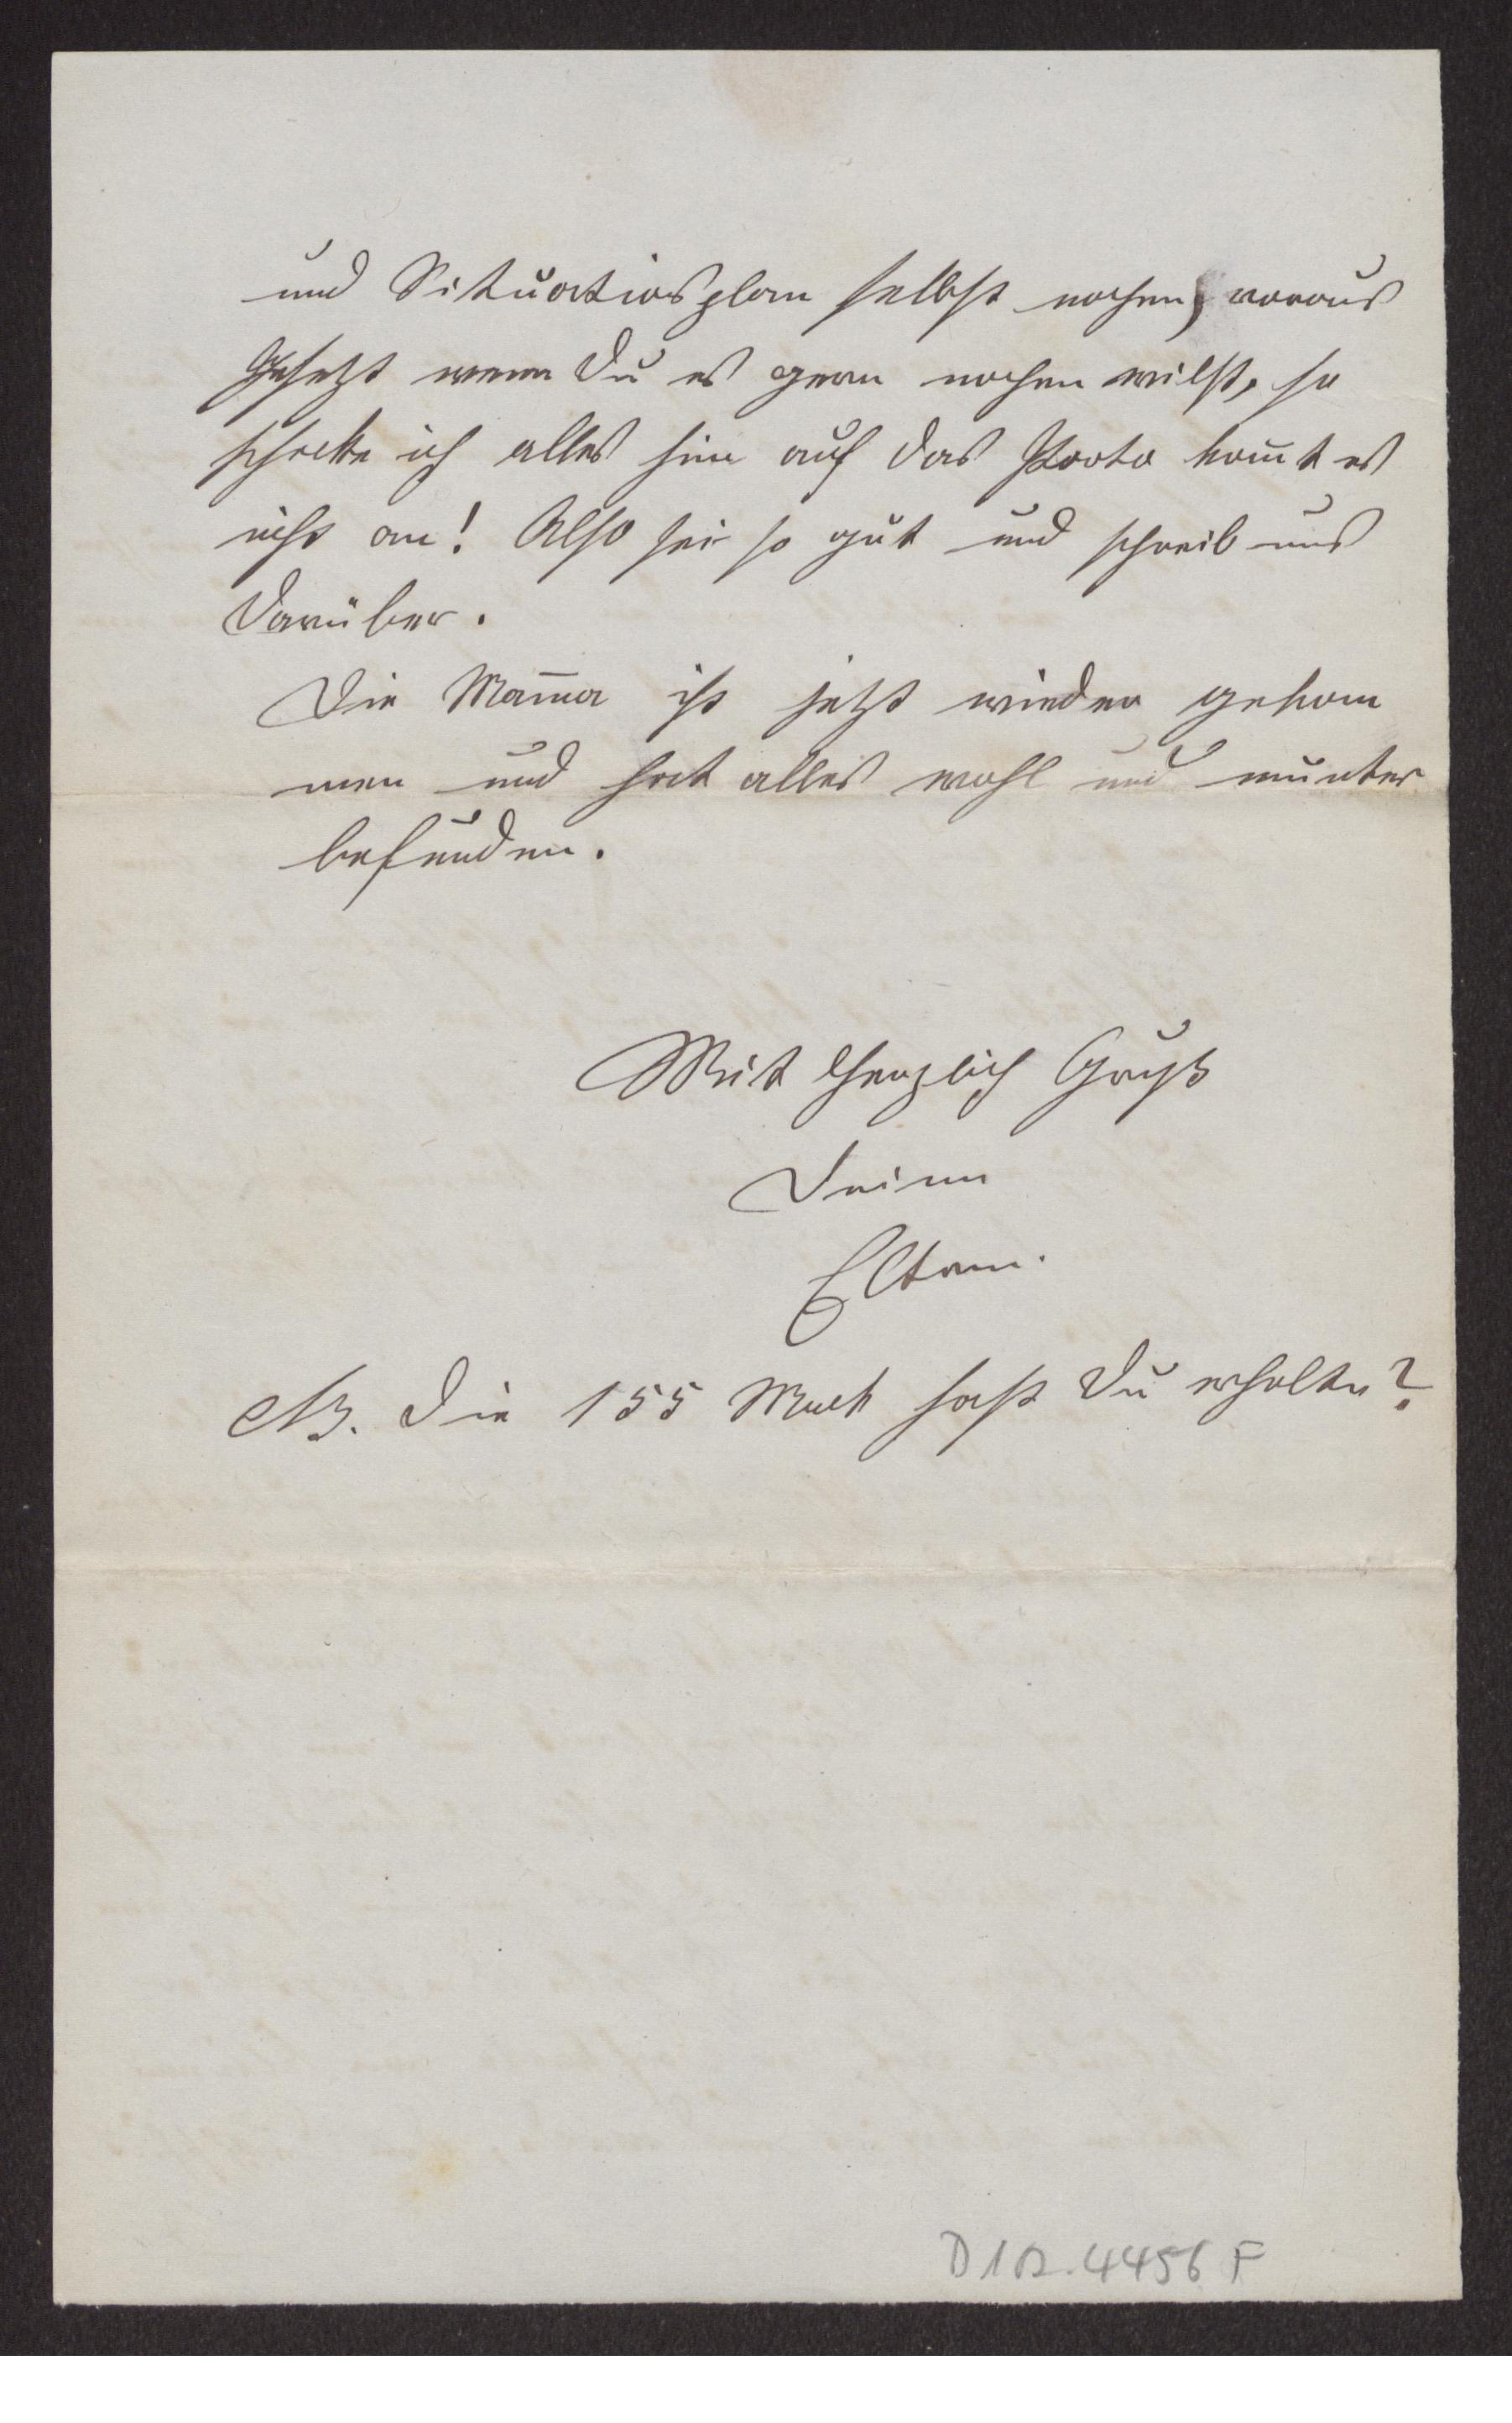 und Situatiosplan selbst nachsen, voraus
gesetzt wenn Du es gern nachsen wilst, so
schicke ich alles hin auf das Porto kom̄t es
nicht an! Also sei so gut und schreib uns
darüber.
Die Mam̄a ist jetzt wieder gekom
men und hat alles wohl und munter
befunden.
Mit Herzlich Gruß
Deine
Eltern.
NB. Die 155 Mark hast Du erhalten?
D 102.4456 F